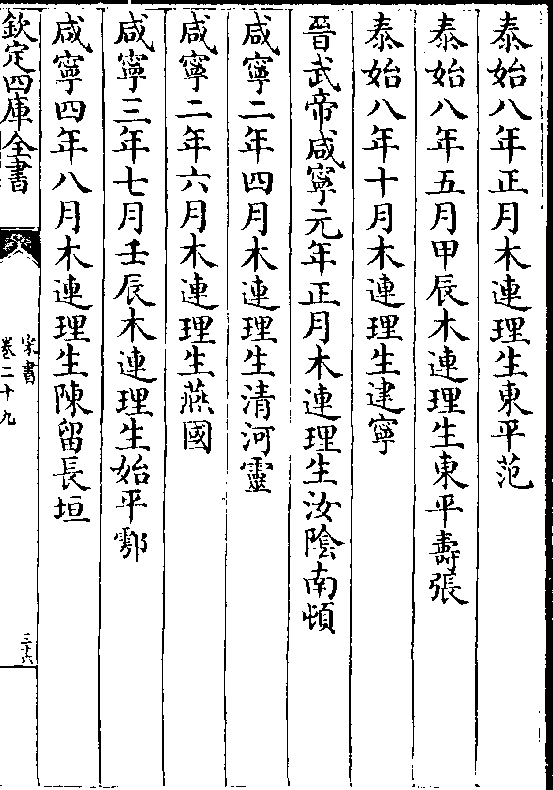 泰始八年正月木連理生東平范
泰始八年五月甲辰木連理生東平壽張
泰始八年十月木連理生建寧
晉武帝咸寧元年正月木連理生汝陰南頓
咸寧二年四月木連理生清河靈
咸寧二年六月木連理生燕國
咸寧三年七月壬辰木連理生始平鄠
咸寧四年八月木連理生陳留長垣
欽定四庫全書
宋書
卷二十九
三十六